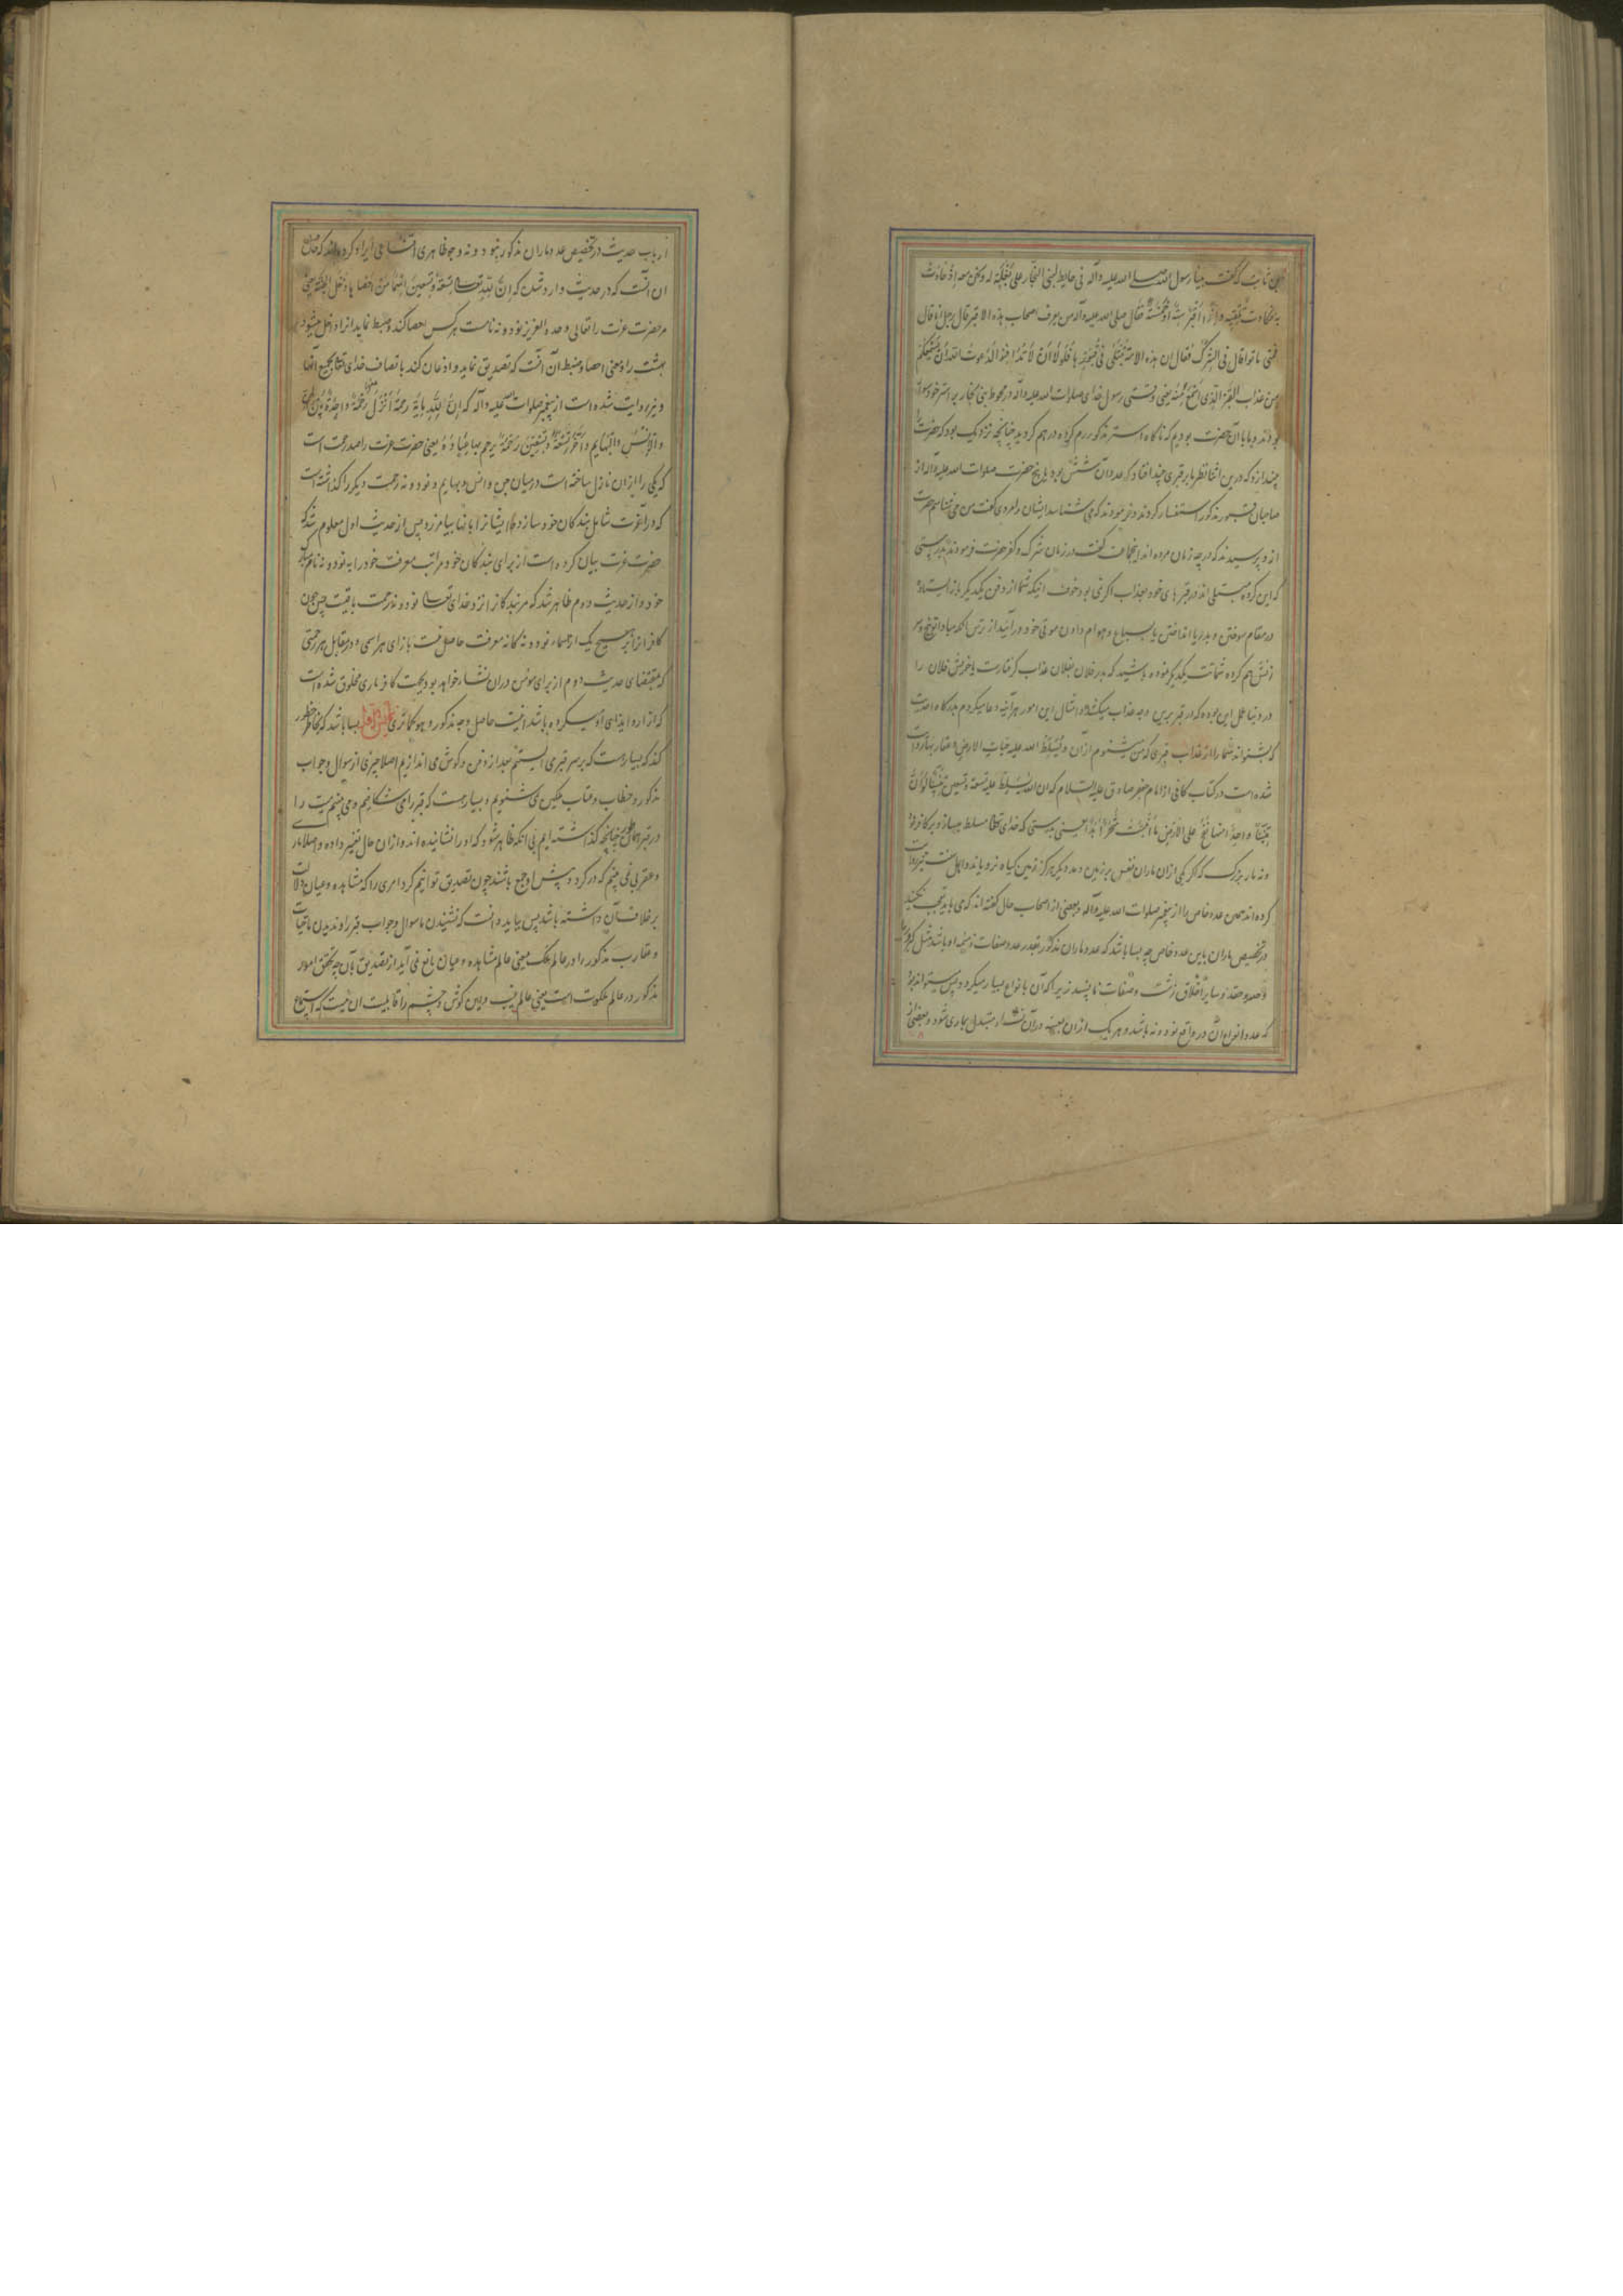 بن ثابت که گفت بینا رسول الله صلی الله علیه وآله فی حایط لبنی النجار علی بغلة له ونحن معه اذ حادت
به فکادت تلقیه واذا اقبر ستة او خمسة فقال صلی الله علیه وآله من یعرف اصحاب هذه الاقبر قال رجل انا قال
فمتی ماتوا قال فی الشرک فقال ان هذه الامة تبتلی فی قبورها فلولا ان لا تدافنوا لدعوت الله ان یسمعکم
من عذاب القبر الذی اسمع منه یعنی وقتی رسول خدای صلوات الله علیه وآله در محوطه بنی نجار بر استر خود سوار
بودند و ما با آن حضرت بودیم که ناگاه استر مذکور رم کرده درهم گردید چنانچه نزدیک بود که حضرت را
بیندازد که درین اثنا نظر ما بر قبری چند افتاد که عدد آن شش بوده یا پنج حضرت صلوات الله علیه وآله از
صاحبان قبور مذکور استفسار کردند و فرمودند که کی می شناسد ایشان را مردی گفت من می شناسم حضرت
ازو پرسیدند که در چه زمان مرده اند این جماعت گفت در زمان شرک و کفر حضرت فرمودند بدرستی
که این گروه مبتلی اند در قبرهای خود بعذاب اگر نمی بود خوف اینکه شما از دفن یکدیگر باز ایستاده
در مقام سوختن و بدریا انداختن یا بسباع و هوام دادن موتی خود در آئید از ترس آنکه مبادا توبیخ و سر
زنش هم کرده شماتت یکدیگر نموده باشید که پدر فلان بفلان عذاب گرفتارست یا خویش فلان را
در دنیا عمل این بوده که در قبر بدین وجه عذاب میکنند و امثال این امور هرآینه دعا میکردم بدرگاه احدیت
که بشنواند شما را از عذاب قبری که من میشنوم ازان و یسلط الله علیه حیات الارض و عقاربها روایت
شده است در کتاب کافی از امام جعفر صادق علیه السلام که ان الله یسلط علیه تسعة وتسعین تنینا لو ان
تنینا واحدا منها نفخ علی الارض ما انبتت شجرا ابدا یعنی بدرستی که خدای تعالی مسلط میسازد بر کافر نود
ونه مار بزرگ که اگر یکی ازان ماران نفس بر زمین دمد دیگر هرگز زمین گیاه نرویاند و اهل سنت نیز روایت
کرده اند همین عدد خاص را از پیغمبر صلوات الله علیه وآله و بعضی از اصحاب حال گفته اند که می باید تعجب نکنید
در تخصیص ماران باین عدد خاص چه بسا باشد که عدد ماران مذکور بقدر عدد صفات ذمیمه او باشد مثل کبر و ریا
و حسد و حقد و سایر اخلاق زشت و صفات ناپسند زیرا که آن بانواع بسیار میگردد پس میتواند بود
که عدد انواع آن در واقع نود و نه باشد و هر یک ازان بعینه در آن نشاء متبدل بماری شود و بعضی از
ارباب حدیث در تخصیص عدد ماران مذکور بنود و نه وجه ظاهری اقناعی ایراد کرده اند که حاصل
آن آنست که در حدیث وارد شده که ان لله تعالی تسعة وتسعین اسما من احصاها دخل الجنة یعنی
مر حضرت عزت را تعالی وحده العزیز نود و نه نامست هرکس احصا کند و ضبط نماید انرا داخل میشود
بهشت را و معنی احصا و ضبط آن آنست که تصدیق نماید و اذعان کند باتصاف خدای تعالی بجمیع آنها
و نیز روایت شده است از پیغمبر صلوات الله علیه وآله که ان لله مایة رحمة انزل منها رحمة واحدة بین الجن
والانس والبهایم واخر تسعة وتسعین رحمة یرحم بها عباده یعنی حضرت عزت را صد رحمت است
که یکی را ازان نازل ساخته است در میان جن و انس و بهایم و نود و نه رحمت دیگر را گذاشته است
که در آخرت شامل بندگان خود سازد و ایشانرا بآنها بیامرزد پس از حدیث اول معلوم شد که
حضرت عزت بیان کرده است از برای بندگان خود مراتب معرفت خود را به نود و نه نام مبارک
خود و از حدیث دوم ظاهر شد که مر بندگانرا نزد خدای تعالی نود و نه رحمت باقیست پس چون
کافر را از هیچ یک از اسماء نود و نه گانه معرفت حاصل نیست بازای هر اسمی و در مقابل هر رحمتی
که بمقتضای حدیث دوم از برای مومن دران نشاء خواهد بود بجهت کافر ماری مخلوق شده است
که از ارو ایذای او میکرده باشد اینست حاصل وجه مذکور و هو کما تری بسا باشد که بخاطر خطور
کند که بسیارست که بر سر قبری ایستیم بعد از دفن و گوش می اندازیم اصلا چیزی از سوال و جواب
مذکور و خطاب و عتاب نکیرین نمی شنویم و بسیارست که قبر را می شکافیم و می بینیم میت را
در قبر بهمان طور چنانچه گذاشته ایم بی آنکه ظاهر شود که او را نشانیده اند و ازان حال تغییر داده و اصلا مار
و عقربی نمی بینیم که در گرد و پیش او جمع باشند چون تصدیق توانیم کرد امری را که مشاهده و عیان دلالت
بر خلاف آن داشته باشد پس بباید دانست که نشنیدن ما سوال و جواب قبر را و ندیدن ما حیات
و عقارب مذکور را در عالم ملک یعنی عالم مشاهده و عیان مانع نمی آید از تصدیق بآن چه تحقق امور
مذکور در عالم ملکوت است یعنی عالم غیب و این گوش و چشم را قابلیت آن نیست که استماع